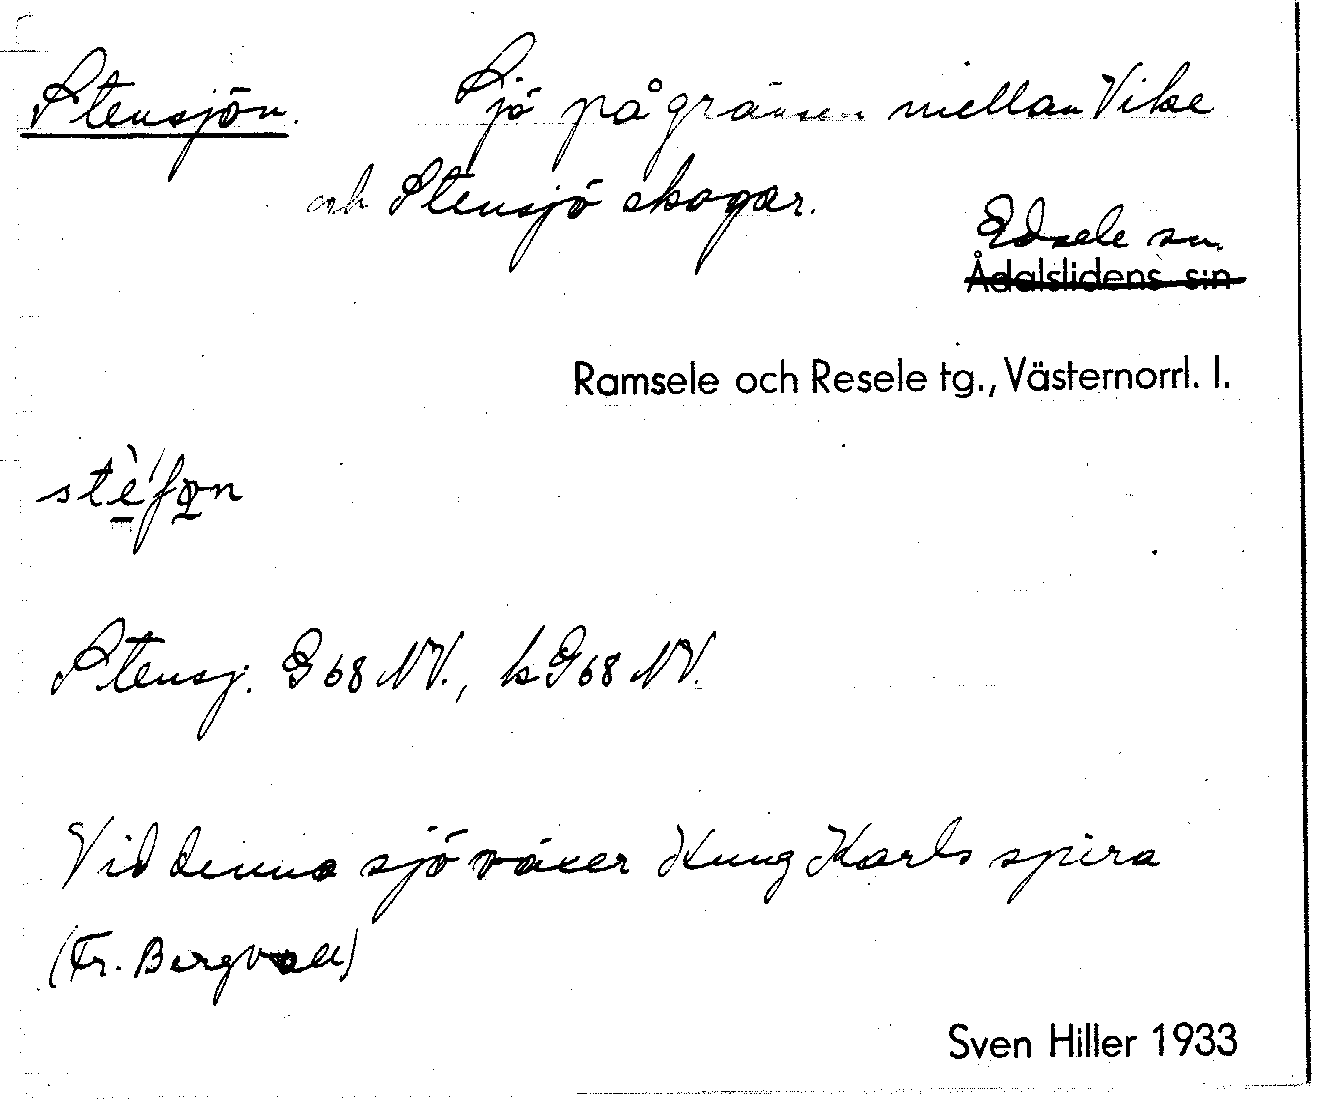 Stensjön. Sjö på gränsen mellan Vike
och Stensjö skogar.
Edsele sn.
Ådalslidens s:n
Ramsele och Resele tg., Västernorrl. l.
Stensj. G68 NV., k G68 NV.
Vid denna sjö växer Kung Karls spira
(Fr. Bergvall)
Sven Hiller 1933